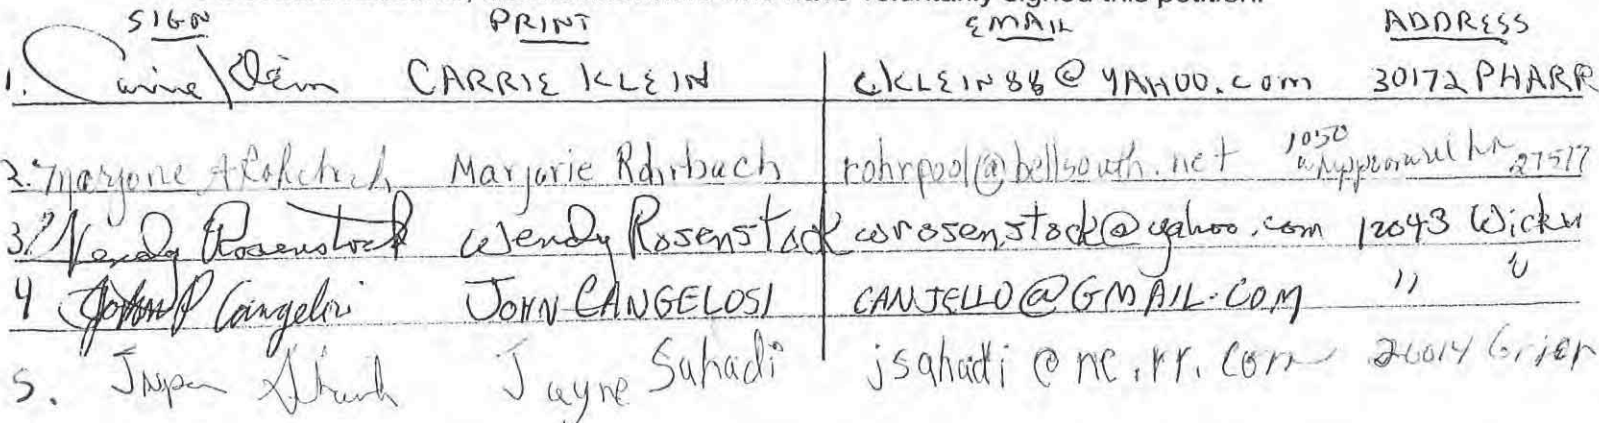 voluntarily signed this petition.
SIGN PRINT EMAIL ADDRESS
1. Carrie Klein CARRIE KLEIN CKLEIN88@YAHOO.COM 30172 PHARR
2. Marjorie A Rohrbach Marjorie Rohrbach rohrpool@bellsouth.net 1050 27517
3. Wendy Rosenstock Wendy Rosenstock wrosenstock@yahoo.com 12043 Wicker
4 John P Cangelosi JOHN CANGELOSI CANJELLO@GMAIL.COM " "
5. Jayne Sahadi jsahadi@nc.rr.com 26014 Grier